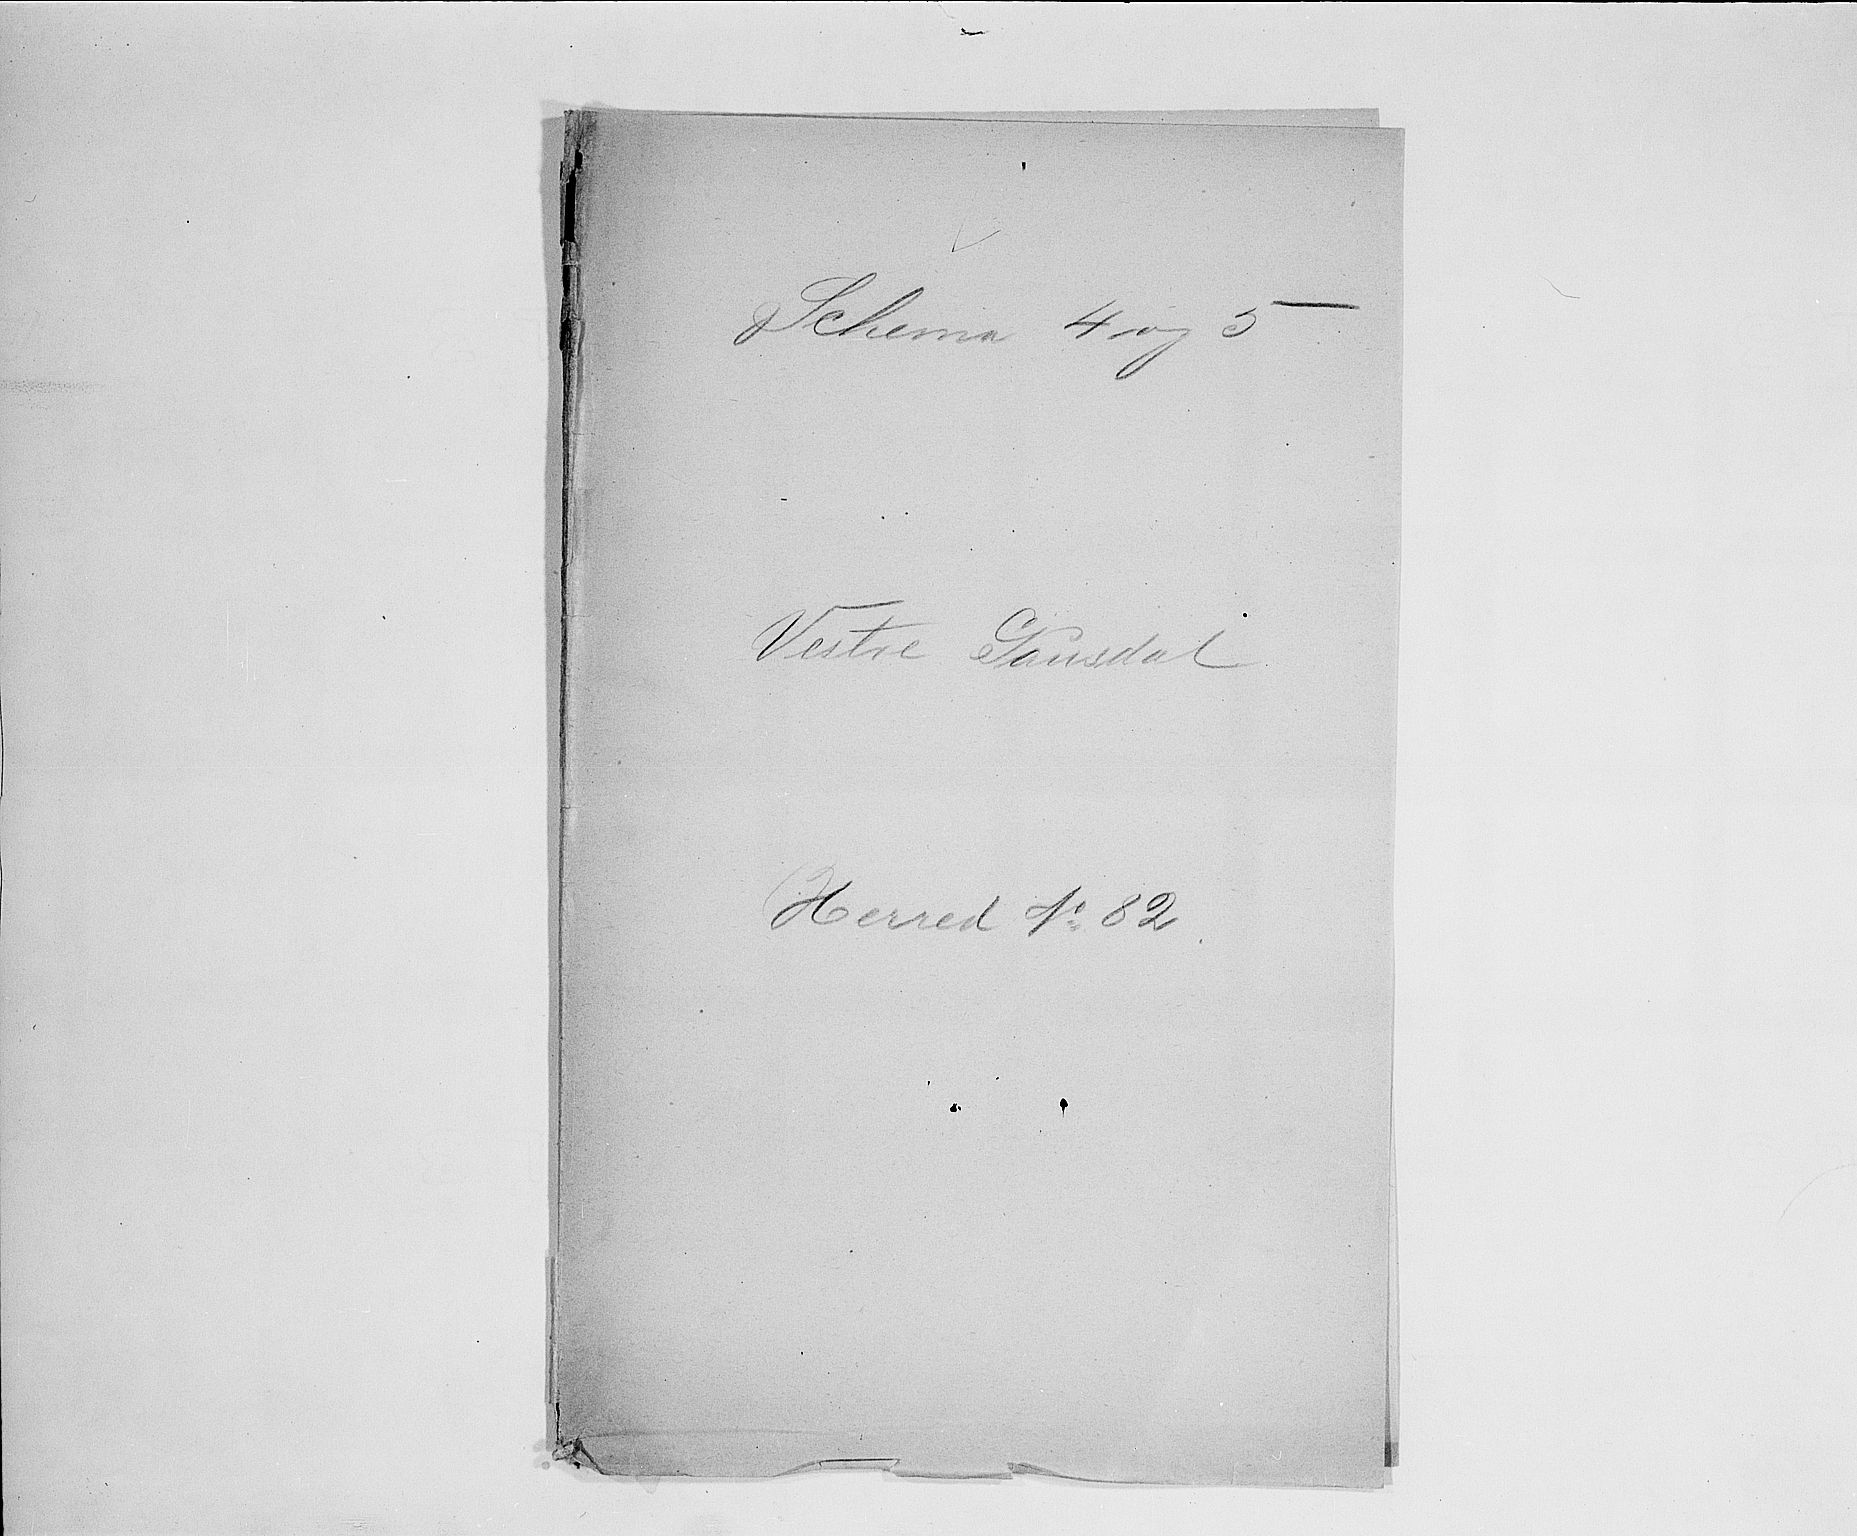 Schema 4 og 5
Vestre Gausdal
Herred № 82.